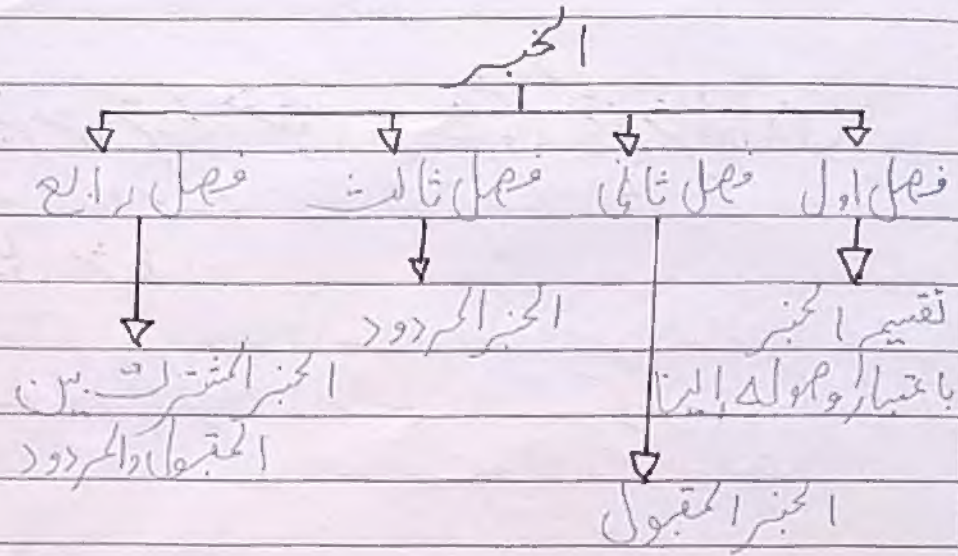 الخبر
فصل اول فصل ثانی فصل ثالث فصل رابع
تقسیم الخبر
باعتبار وصوله إلینا
الخبر المقبول
الخبر المردود
الخبر المشترك بین
المقبول والمردود